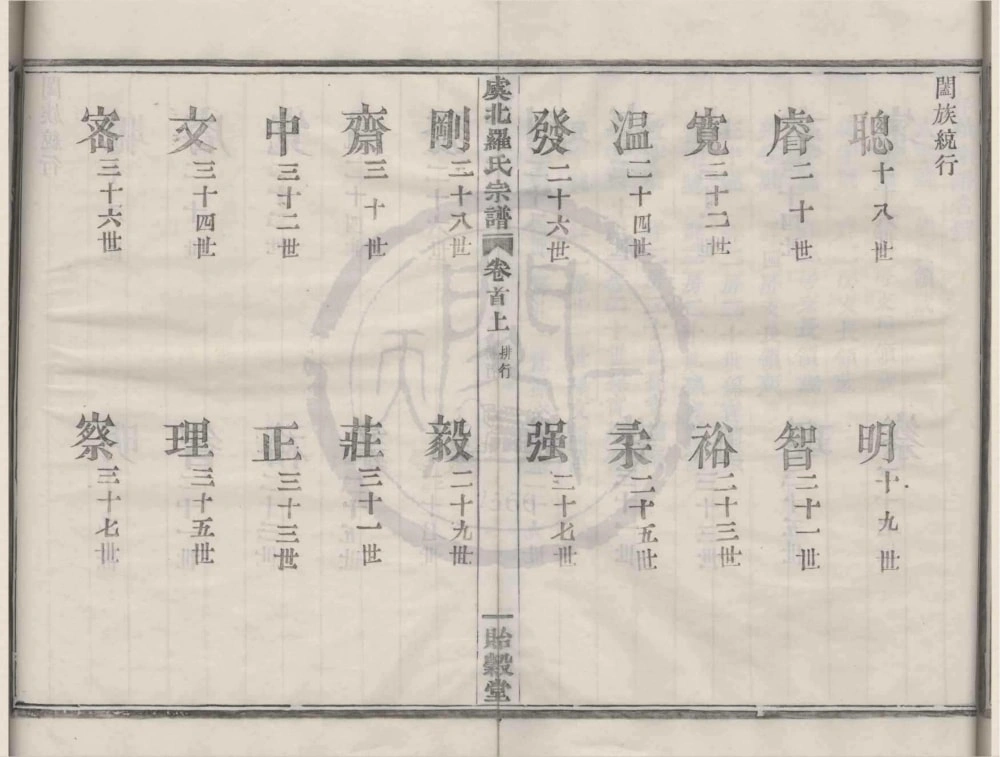 闔族統行
聰十八世
明十九世
睿二十世
智二十一世
寬二十二世
裕二十三世
温二十四世
柔二十五世
發二十六世
强二十七世
虞北羅氏宗譜 卷首上 排行 貽穀堂
剛二十八世
毅二十九世
齋三十世
莊三十一世
中三十二世
正三十三世
文三十四世
理三十五世
密三十六世
察三十七世